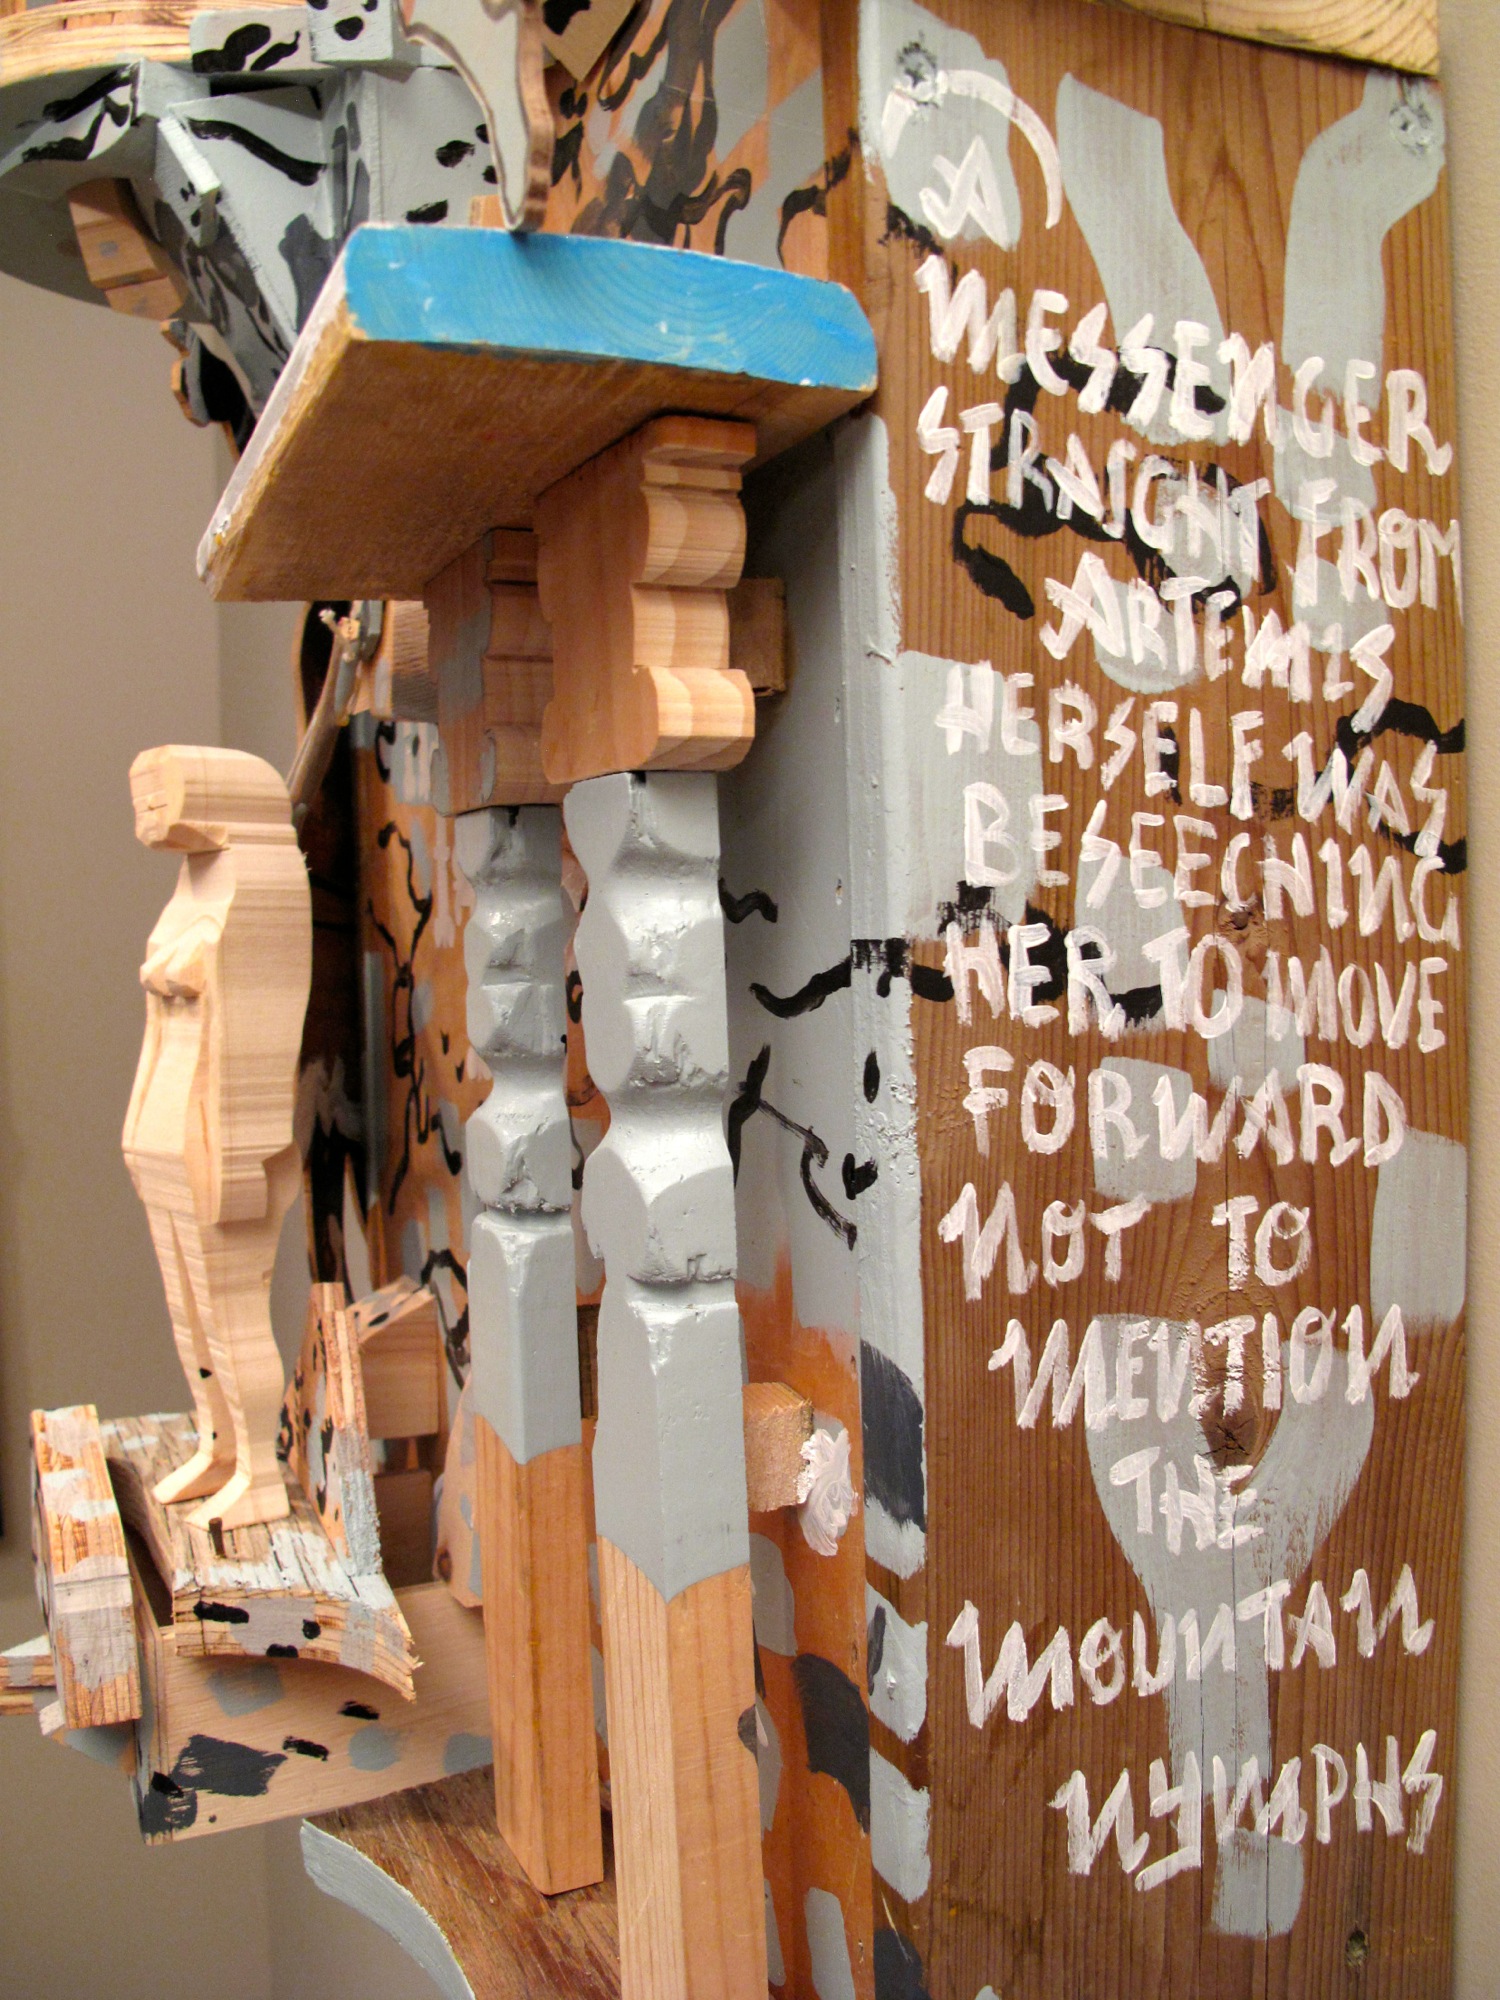 A
MESSENGER
STRAIGHT FROM
ARTEMIS
HERSELF WAS
BESEECHING
HER TO MOVE
FORWARD
NOT TO
MENTION
THE
MOUNTAIN
NYMPHS